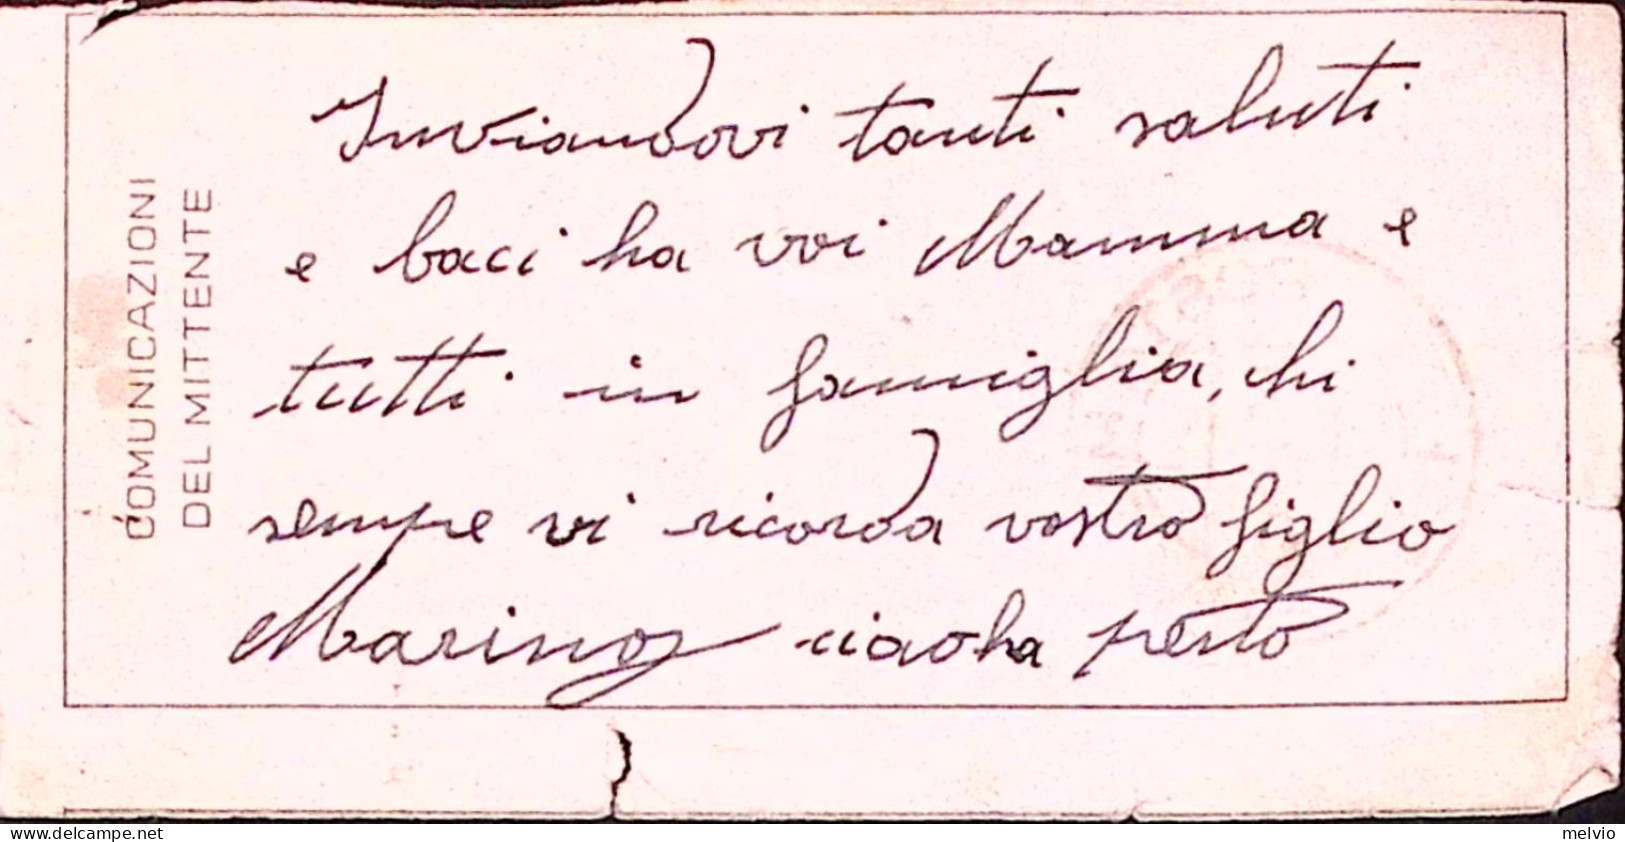 COMUNICAZIONI
DEL MITTENTE
Inviandovi tanti saluti
e baci ha voi Mamma e
tutti in famiglia, chi
sempre vi ricorda vostro figlio
Marino ciao ha presto
www.delcampe.net
melvio